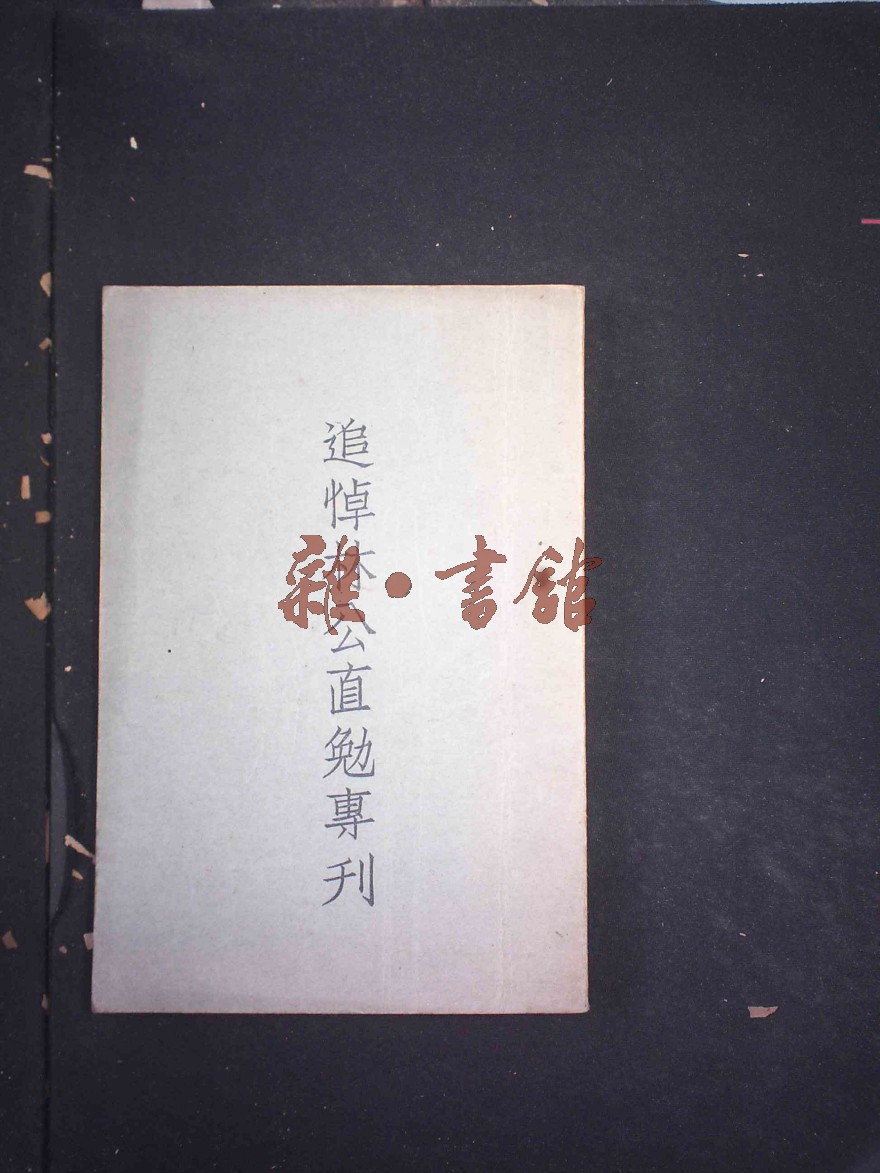 追悼林公直勉專刋
雜·書館